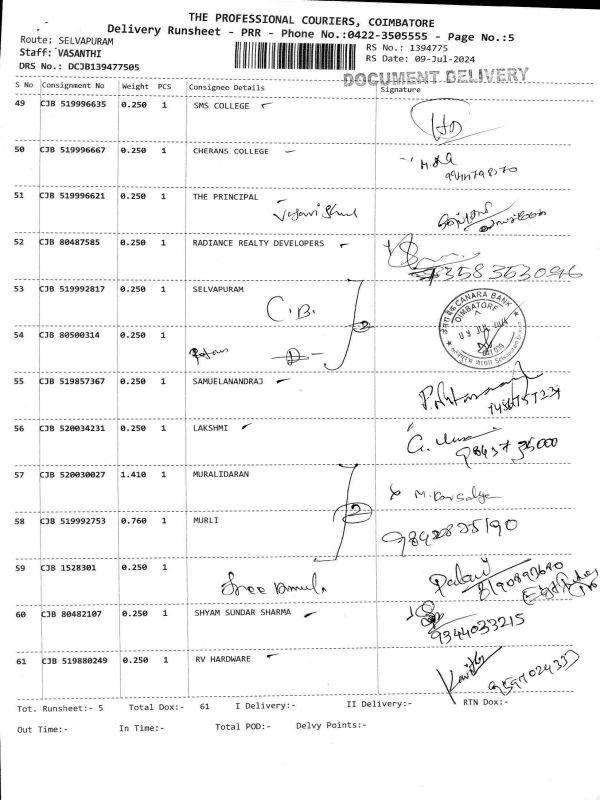 THE PROFESSIONAL COURIERS, COIMBATORE
Delivery Runsheet - PRR - Phone No.:0422-3505555 - Page No.:5
Route: SELVAPURAM
RS No.: 1394775
Staff: VASANTHI
RS Date: 09-Jul-2024
DRS No.: DCJB139477505
DOCUMENT DELIVERY
S No Consignment No Weight PCS Consignee Details Signature
49 CJB 519996635 0.250 1 SMS COLLEGE
50 CJB 519996667 0.250 1 CHERANS COLLEGE
51 CJB 519996621 0.250 1 THE PRINCIPAL
52 CJB 80487585 0.250 1 RADIANCE REALTY DEVELOPERS
9358353096
53 CJB 519992817 0.250 1 SELVAPURAM
C.B.
CANARA BANK
COIMBATORE
54 CJB 80500314 0.250 1
2
55 CJB 519857367 0.250 1 SAMUELANANDRAJ
56 CJB 520034231 0.250 1 LAKSHMI
57 CJB 520030027 1.410 1 MURALIDARAN
M. Kousalya
58 CJB 519992753 0.760 1 MURLI
2
9842875190
59 CJB 1528301 0.250 1
60 CJB 80482107 0.250 1 SHYAM SUNDAR SHARMA
9344033215
61 CJB 519880249 0.250 1 RV HARDWARE
Tot. Runsheet:- 5 Total Dox:- 61 I Delivery:- II Delivery:- RTN Dox:-
Out Time:- In Time:- Total POD:- Delvy Points:-